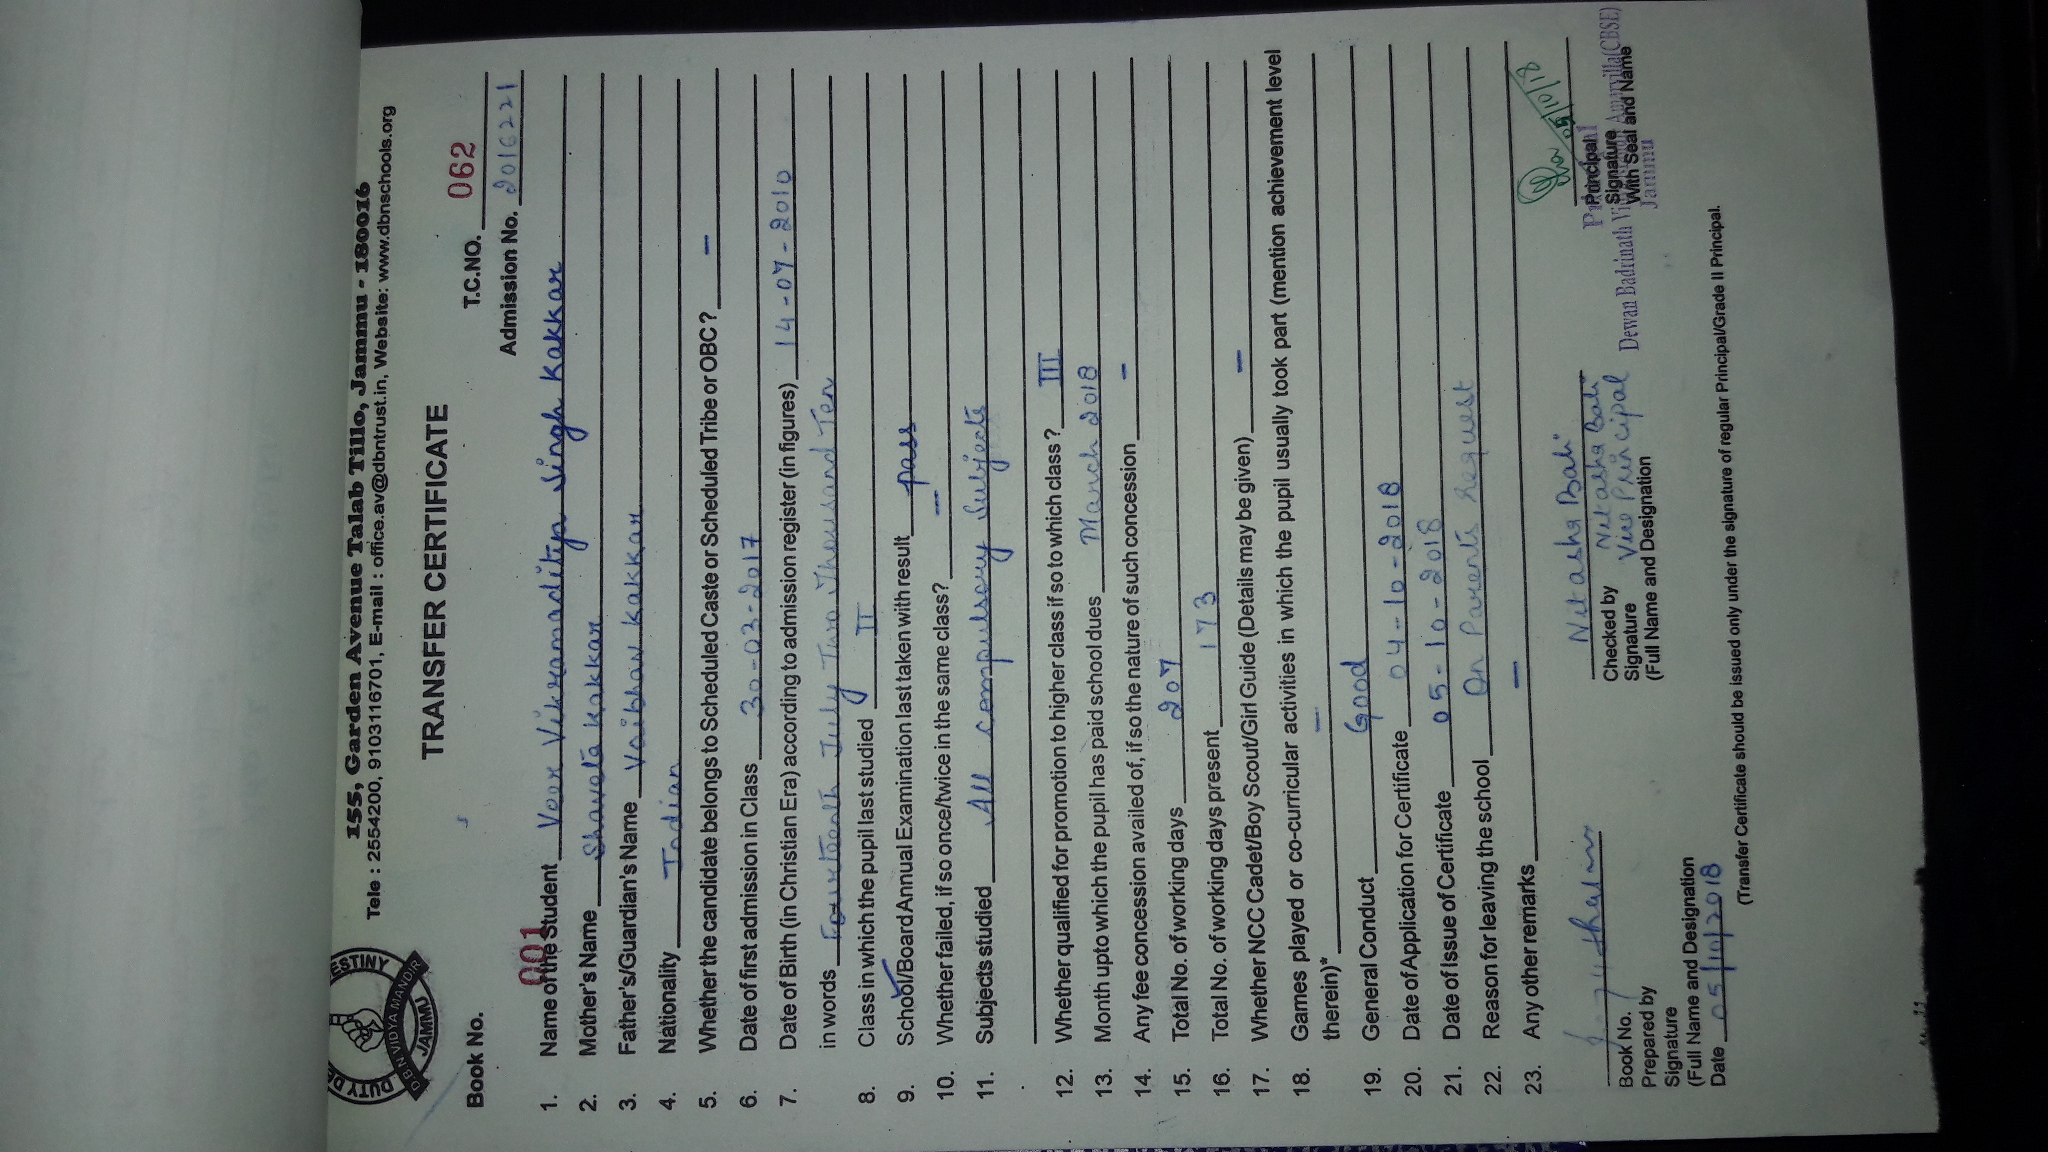 155, Garden Avenue Talab Tillo, Jammu - 180016
Tele : 2554200, 9103116701, E-mail : office.av@dbntrust.in, Website: www.dbnschools.org
DBN VIDYA MANDIR
JAMMU
TRANSFER CERTIFICATE
Book No. 001 T.C.NO. 062
Admission No. 2016221
1. Name of the Student Veer Vikramaditya Singh Kakkar
2. Mother's Name Shaveta Kakkar
3. Father's/Guardian's Name Vaibhav Kakkar
4. Nationality Indian
5. Whether the candidate belongs to Scheduled Caste or Scheduled Tribe or OBC? –
6. Date of first admission in Class 30-03-2017
7. Date of Birth (in Christian Era) according to admission register (in figures) 14-07-2010
in words Fourteenth July Two Thousand Ten
8. Class in which the pupil last studied II
9. School/Board Annual Examination last taken with result pass
10. Whether failed, if so once/twice in the same class? –
11. Subjects studied All compulsory Subjects
12. Whether qualified for promotion to higher class if so to which class? III
13. Month upto which the pupil has paid school dues March 2018
14. Any fee concession availed of, if so the nature of such concession –
15. Total No. of working days 207
16. Total No. of working days present 173
17. Whether NCC Cadet/Boy Scout/Girl Guide (Details may be given) –
18. Games played or co-curricular activities in which the pupil usually took part (mention achievement level
therein)* –
19. General Conduct Good
20. Date of Application for Certificate 04-10-2018
21. Date of Issue of Certificate 05-10-2018
22. Reason for leaving the school On Parents Request
23. Any other remarks –
05/10/18
Nitasha Bali
Book No. Checked by Nitasha Bali Principal
Prepared by Signature Vice Principal Signature
Signature (Full Name and Designation) With Seal and Name
(Full Name and Designation
Date 05/10/2018
Principal
Dewan Badrinath (CBSE)
Jammu
(Transfer Certificate should be issued only under the signature of regular Principal/Grade II Principal.